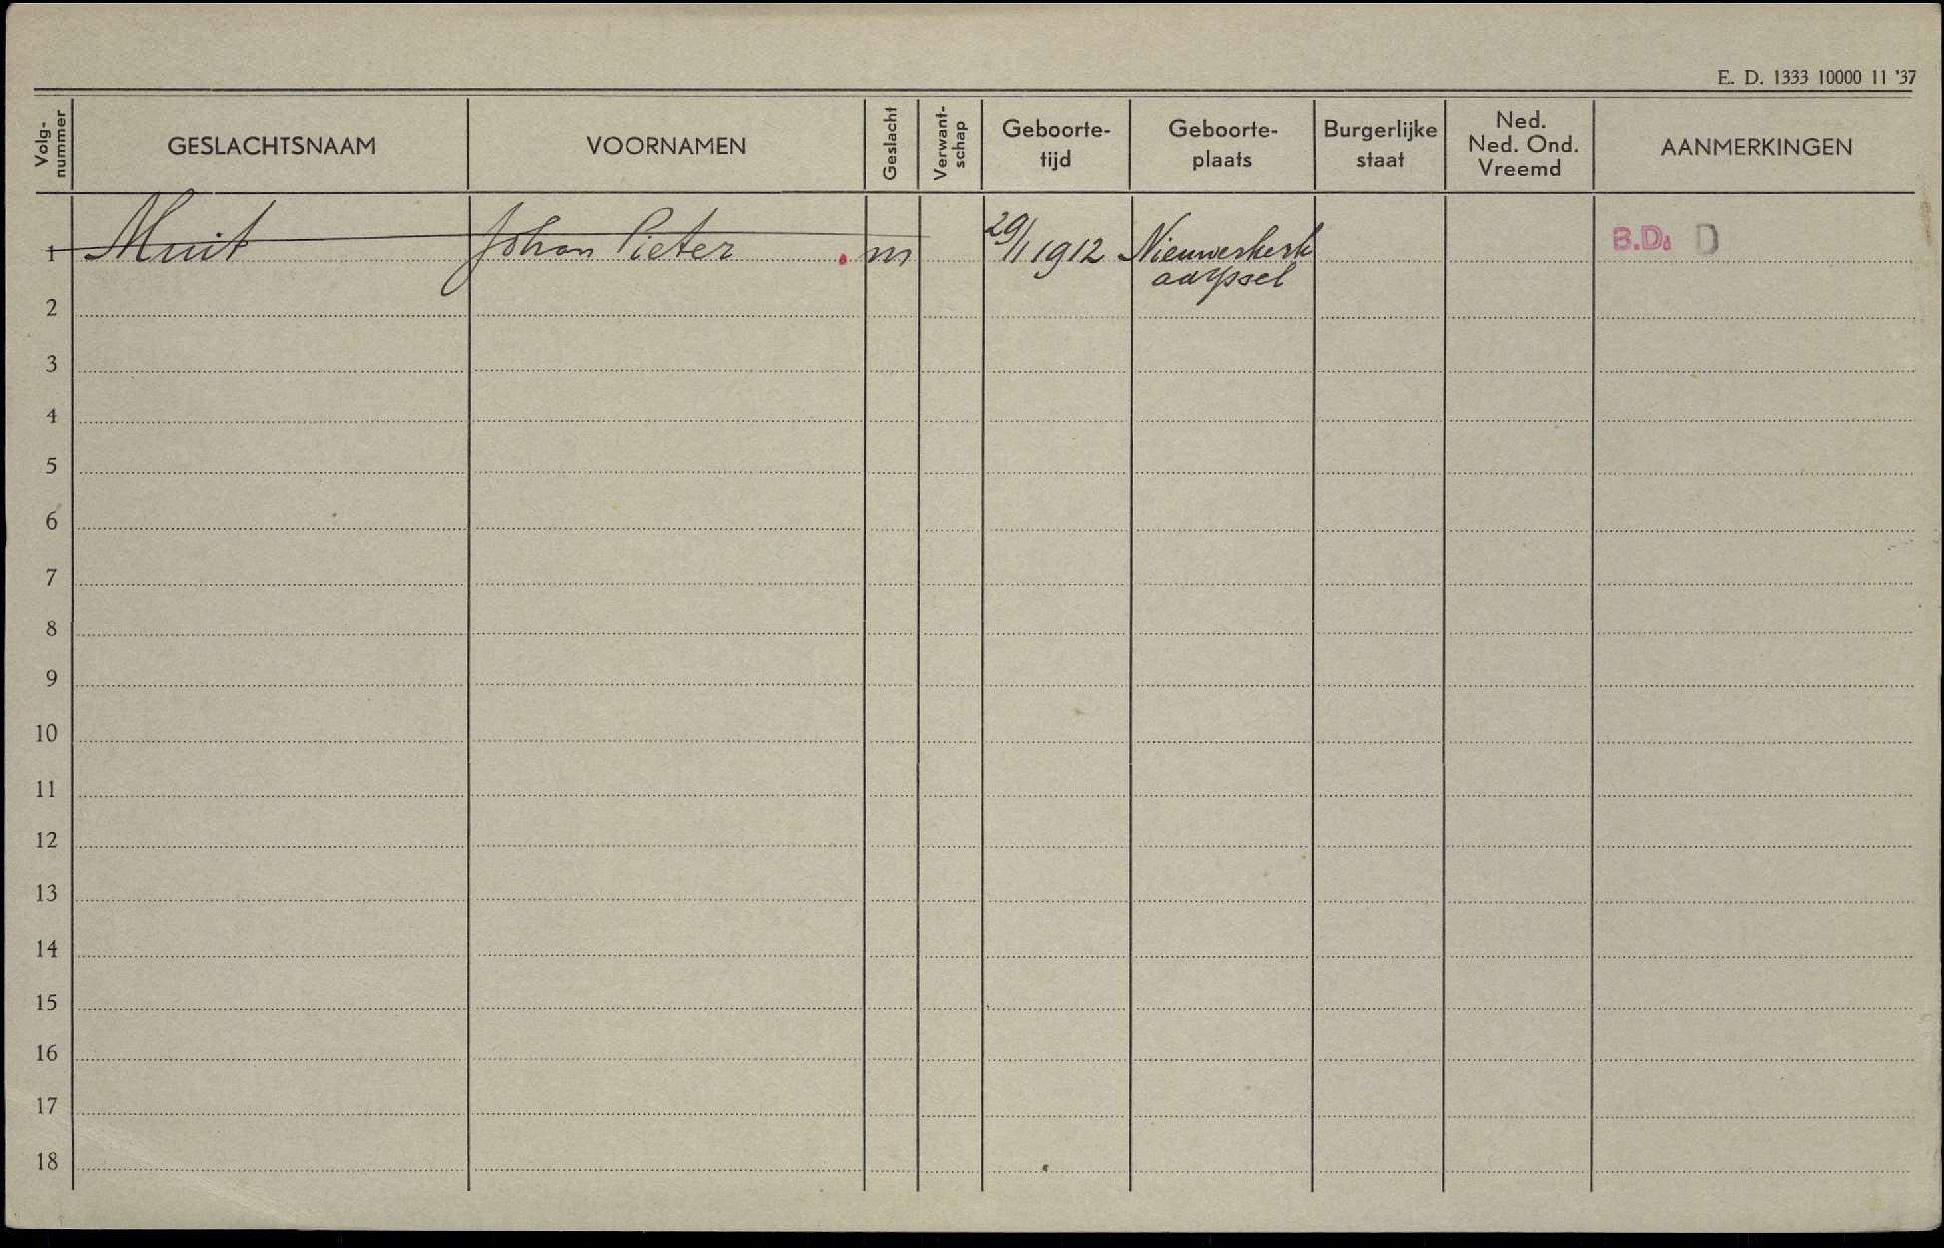 E. D. 1333 10000 11 '37
Volg-nummer GESLACHTSNAAM VOORNAMEN Geslacht Verwant-schap Geboorte-tijd Geboorte-plaats Burgerlijke staat Ned. Ned. Ond. Vreemd AANMERKINGEN
1 Muit Johan Pieter m 29/1 1912 Nieuwerkerk B.D. D
adYssel
2
3
4
5
6
7
8
9
10
11
12
13
14
15
16
17
18